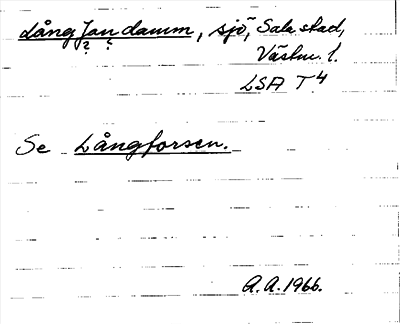 Lång Jan damm, sjö, Sala stad,
? ?
Västm. l.
LSA T4
Se Långforsen.
A.A. 1966.